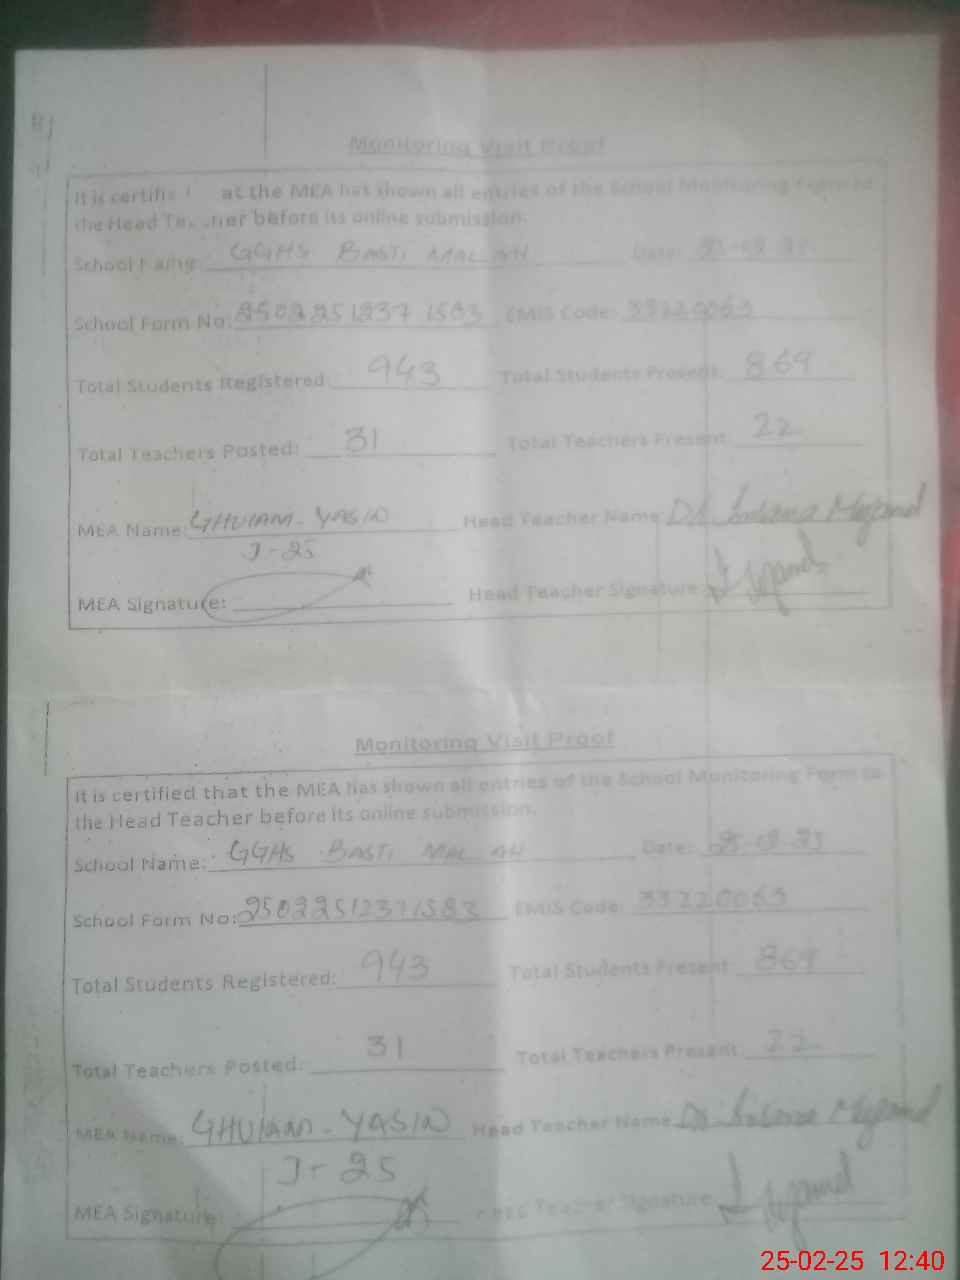 Monitoring Visit Proof
It is certifie at the MEA has shown all entries of the School Monitoring Form to
the Head Teacher before its online submission.
School Name: GGHS BASTI MALAH Date: 25-02-25
School Form No: 25022512371583 EMIS Code: 33220063
Total Students Registered: 943 Total Students Present: 869
Total Teachers Posted: 31 Total Teachers Present: 22
MEA Name: GHULAM. YASIN Head Teacher Name
J-25
MEA Signature: Head Teacher Signature
Monitoring Visit Proof
It is certified that the MEA has shown all entries of the School Monitoring Form to
the Head Teacher before its online submission.
School Name: GGHS BASTI MALAH Date: 25-02-25
School Form No: 25022512371583 EMIS Code: 33220063
Total Students Registered: 943 Total Students Present: 869
Total Teachers Posted: 31 Total Teachers Present: 22
MEA Name: GHULAM. YASIN Head Teacher Name
J-25
MEA Signature: Head Teacher Signature:
25-02-25 12:40